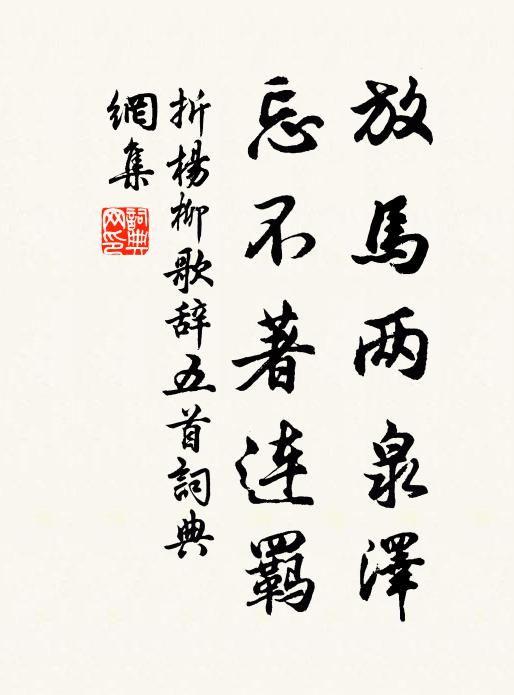 放馬两泉澤
忘不著連羈
折楊柳歌辞五首詞典
網集
詞典
网印